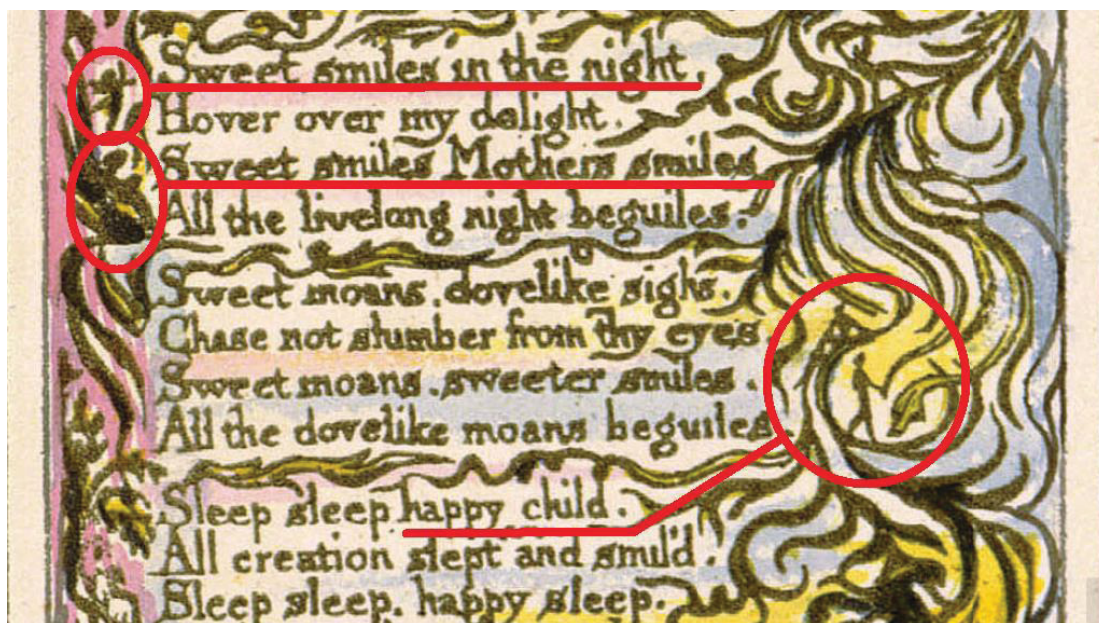 Sweet smiles in the night,
Hover over my delight.
Sweet smiles Mothers smiles
All the livelong night beguiles.
Sweet moans. dovelike sighs.
Chase not slumber from thy eyes
Sweet moans. sweeter smiles.
All the dovelike moans beguiles.
Sleep sleep happy child.
All creation slept and smil'd.
Sleep sleep. happy sleep.